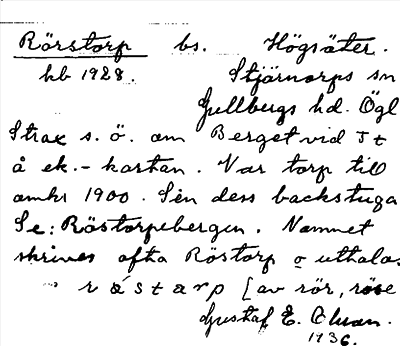 Rörstorp bs. Högsäter.
hb 1928. Stjärnorps sn
Gullbergs hd. Ögl
Strax s. ö. om Berget vid St
å ek.-kartan. Var torp till
omkr 1900. Sen dess backstuga
Se: Röstorpebergen. Namnet
skrives ofta Röstorp o uttalas
[av rör, röse
Gustaf E. Olsson.
1936.